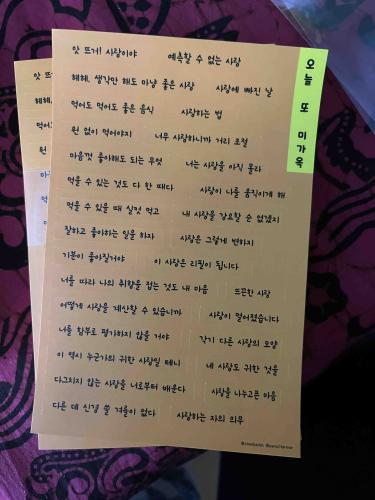 앗 뜨거! 사랑이야
예측할 수 없는 사랑
헤헤, 생각만 해도 마냥 좋은 사랑
사랑에 빠진 날
먹어도 먹어도 좋은 음식
사랑하는 법
원 없이 먹어야지
너무 사랑하니까 거리 조절
마음껏 좋아해도 되는 무엇
너는 사랑을 아직 몰라
먹을 수 있는 것도 다 한 때다
사랑이 나를 움직이게 해
먹을 수 있을 때 실컷 먹고
내 사랑을 강요할 순 없겠지
잘하고 좋아하는 일을 하자
사랑은 그렇게 변하지
기분이 좋아질거야
이 사랑은 리필이 됩니다
너를 따라 나의 취향을 접는 것도 내 마음
뜨끈한 사랑
어떻게 사랑을 계산할 수 있습니까
사랑이 떨어졌습니다
너를 함부로 평가하지 않을 거야
각기 다른 사랑의 모양
이 역시 누군가의 귀한 사랑일 테니
네 사랑도 귀한 것을
다그치지 않는 사랑을 너로부터 배운다
사랑을 나누고픈 마음
다른 데 신경 쓸 겨를이 없다
사랑하는 자의 의무
오늘 또 미가옥
앗 뜨
헤헤,
먹어도
원 없
마음
먹을